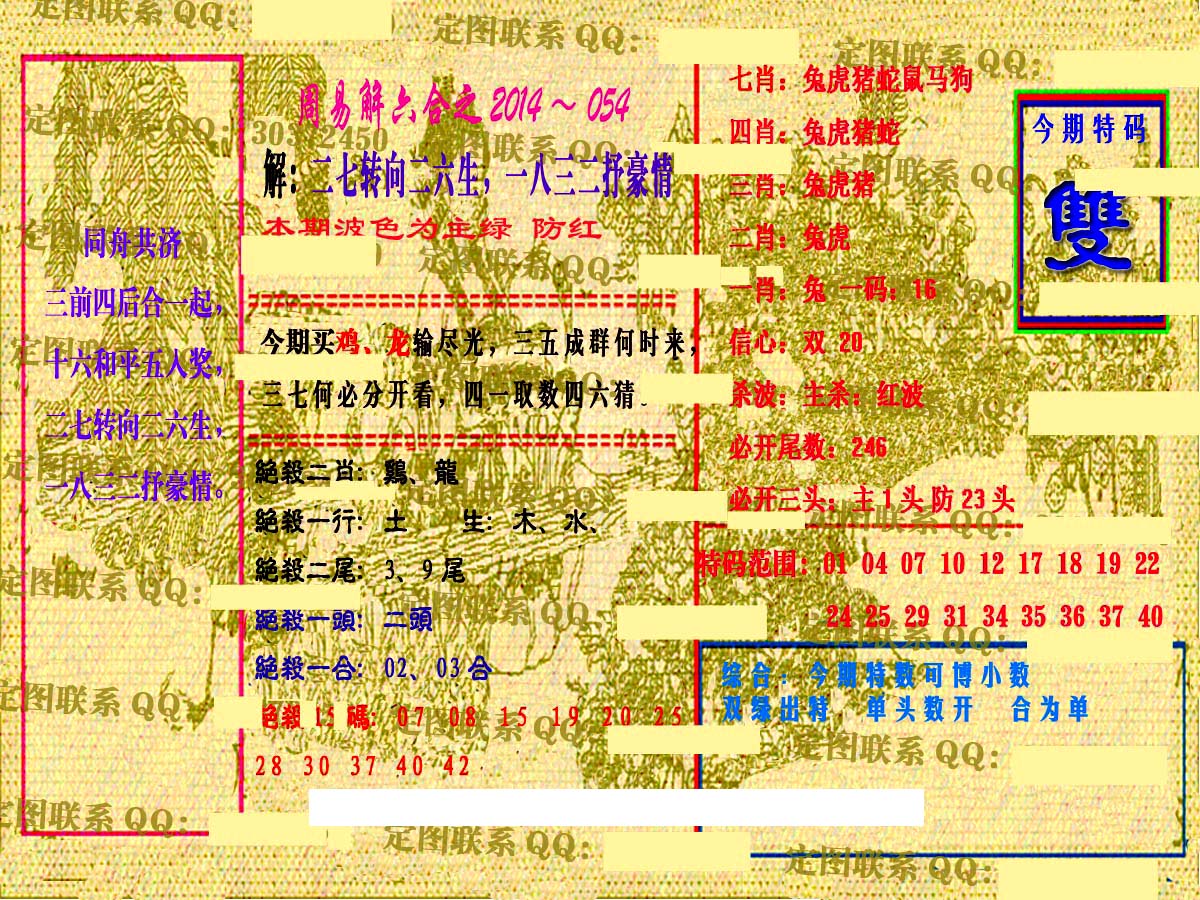 周易解六合之 2014～054
解：二七转向二六生，一八三二抒豪情
本期波色为主绿 防红
同舟共济
三前四后合一起，
十六和平五人奖，
二七转向二六生，
一八三二抒豪情。
今期买鸡、龙输尽光，三五成群何时来，
三七何必分开看，四一取数四六猜。
絕殺二肖：鷄、龍
絕殺一行：土 生：木、水、
絕殺二尾：3、9尾
絕殺一頭：二頭
絕殺一合：02、03合
15 碼：07 08 15 19 20 25
28 30 37 40 42
七肖：兔虎猪蛇鼠马狗
四肖：兔虎猪蛇
三肖：兔虎猪
二肖：兔虎
一肖：兔 一码：16
信心：双 20
杀波：主杀：红波
必开尾数：246
必开三头：主1头防23头
今期特码
雙
特码范围：01 04 07 10 12 17 18 19 22
24 25 29 31 34 35 36 37 40
综合：今期特数可博小数
双绿出特 单头数开 合为单
定图联系 QQ：
定图联系 QQ：
定图联系 QQ：
定图联系 QQ：
定图联系 QQ：
定图联系 QQ：
定图联系 QQ：
定图联系 QQ：
定图联系 QQ：
定图联系 QQ：
定图联系 QQ：
定图联系 QQ：